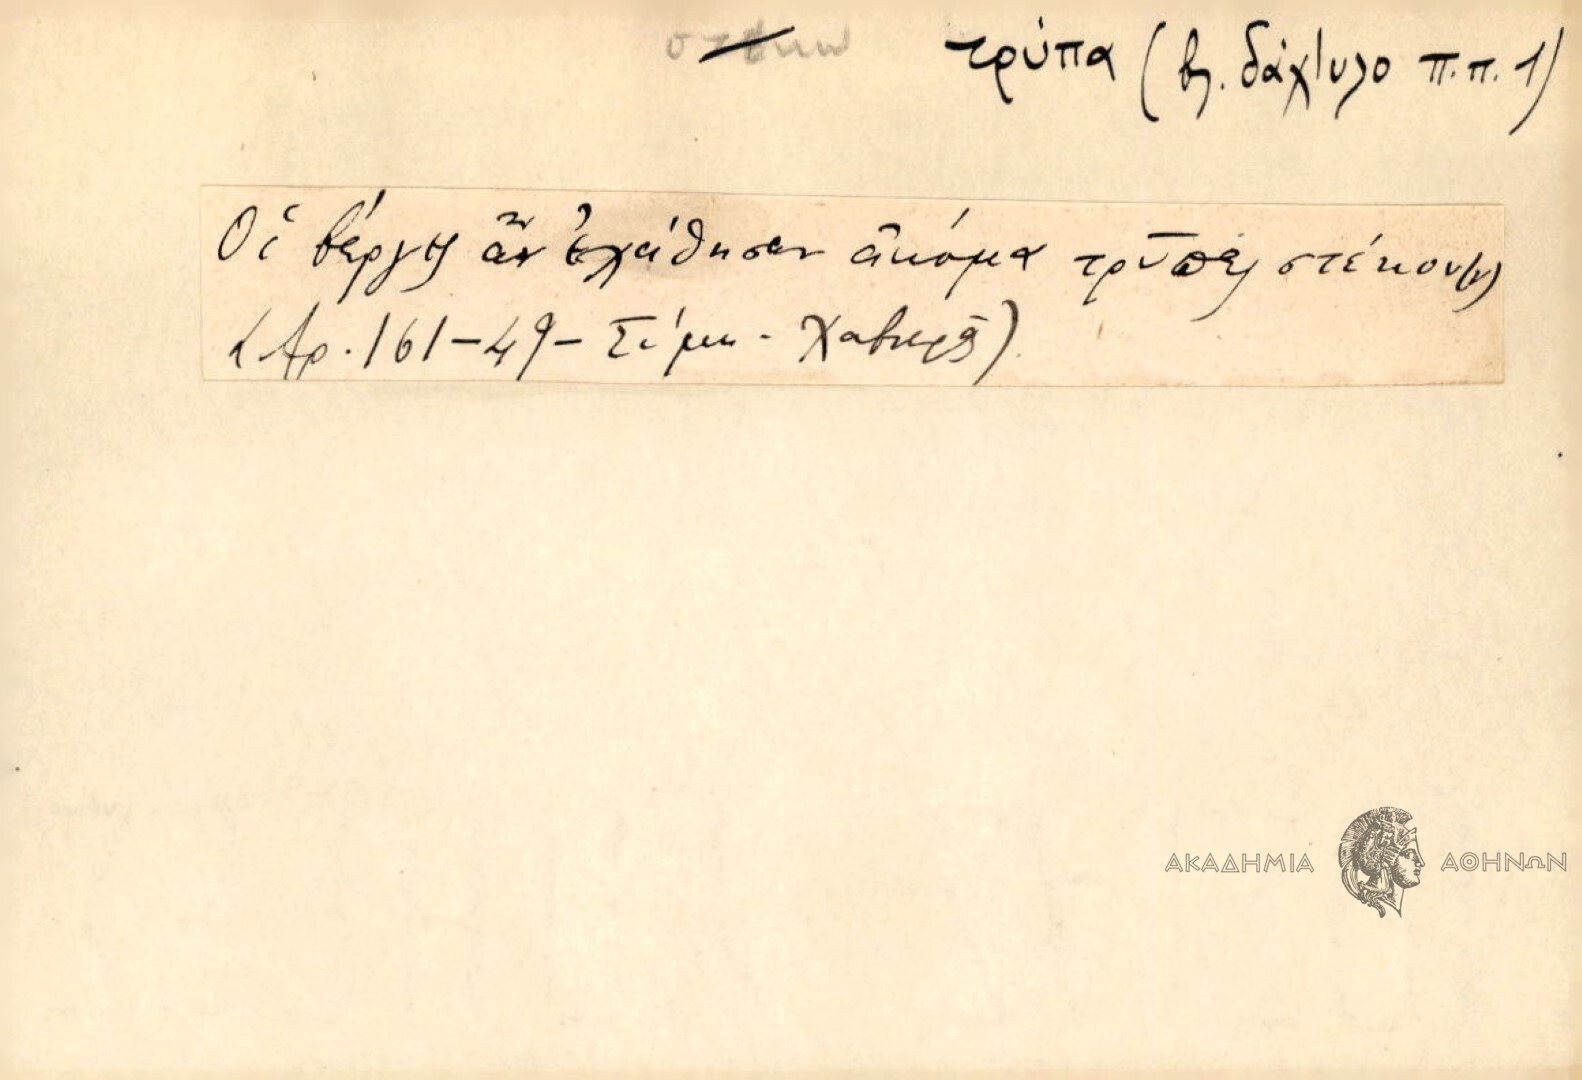 τρύπα (βλ. δάχτυλο π.π. 1)
Οἱ βέργες ἄν ἐχάθησαν ἀκόμα τρῦπες στέκου(ν)
(Ἀρ. 161-49- Σύμη - Χαβιαρᾶ)
ΑΚΑΔΗΜΙΑ ΑΘΗΝΩΝ